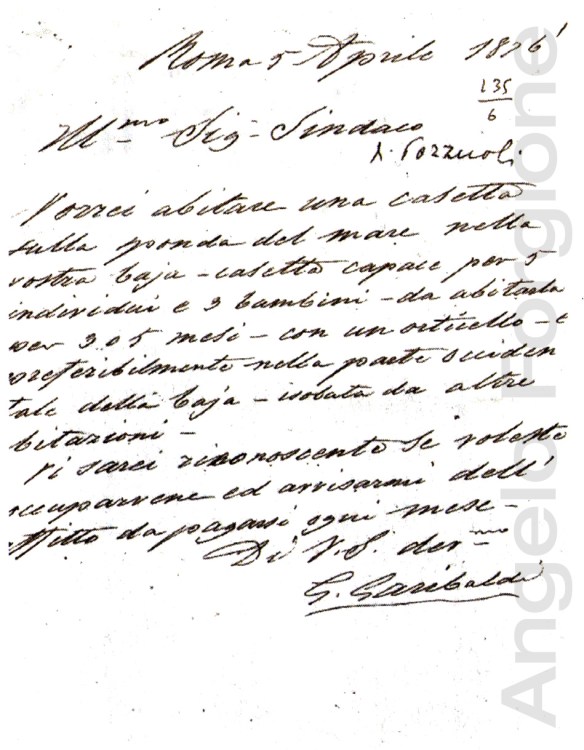 Roma 5 Aprile 1876
135
6
Ill.mo Sig. Sindaco
di Pozzuoli
Vorrei abitare una casetta
sulla sponda del mare nella
vostra baja - casetta capace per 5
individui e 3 bambini - da abitarla
per 3 o 5 mesi - con un orticello - e
preferibilmente nella parte occiden
tale della baja - isolata da altre
bitazioni -
Vi sarei riconoscente se voleste
occuparvene ed avvisarmi dell'
affitto da pagarsi ogni mese -
Di V. S. dev.mo
G. Garibaldi
Angelo Forgione